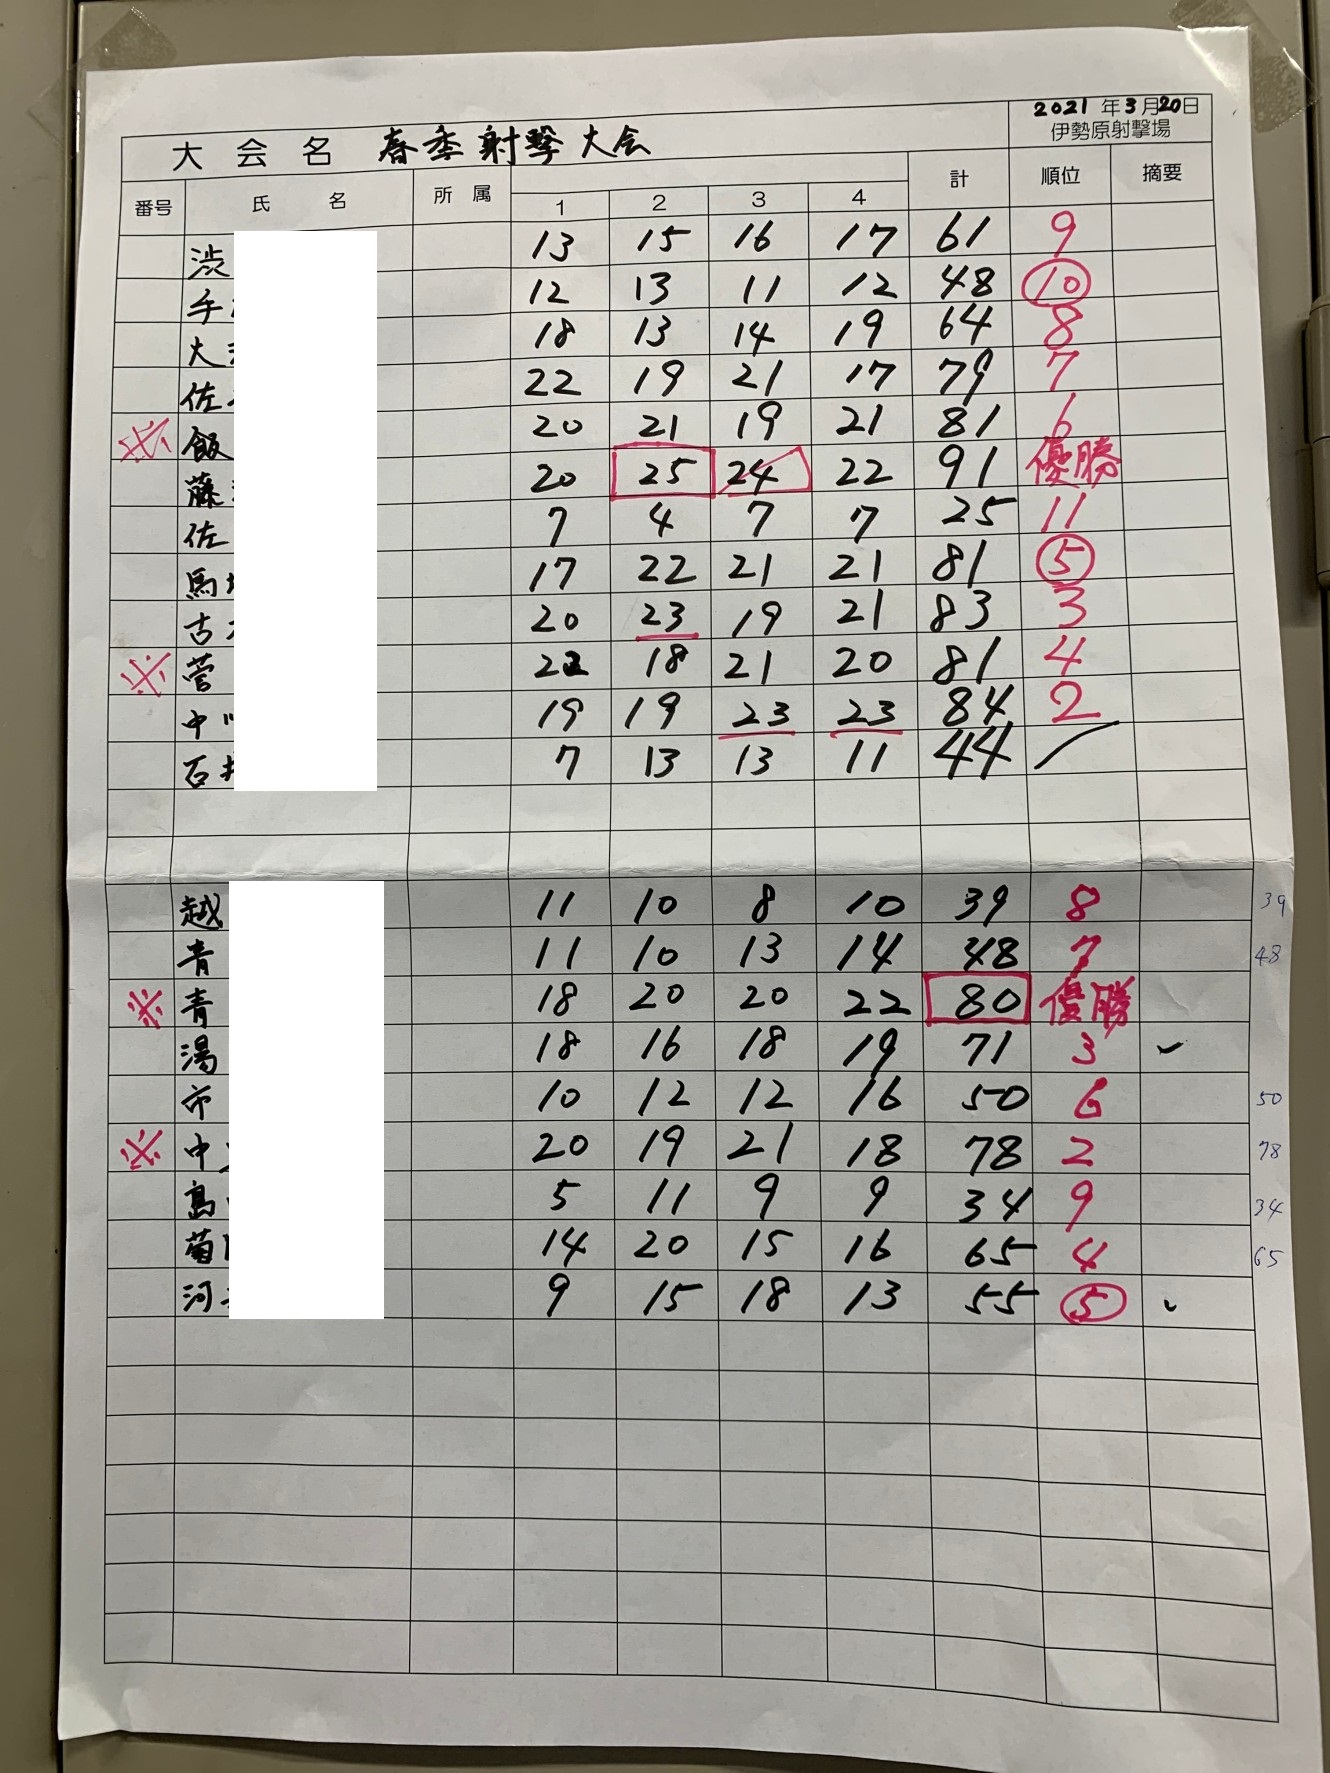 2021年3月20日
大会名 春季射撃大会 伊勢原射撃場
番号 氏名 所属 1 2 3 4 計 順位 摘要
渋 13 15 16 17 61 9
手 12 13 11 12 48 10
大 18 13 14 19 64 8
佐 22 19 21 17 79 7
※ 飯 20 21 19 21 81 6
藤 20 25 24 22 91 優勝
佐 7 4 7 7 25 11
馬 17 22 21 21 81 5
古 20 23 19 21 83 3
※ 菅 22 18 21 20 81 4
中 19 19 23 23 84 2
石 7 13 13 11 44
越 11 10 8 10 39 8 39
青 11 10 13 14 48 7 48
※ 青 18 20 20 22 80 優勝
湯 18 16 18 19 71 3
市 10 12 12 16 50 6 50
※ 中 20 19 21 18 78 2 78
島 5 11 9 9 34 9 34
菊 14 20 15 16 65 4 65
河 9 15 18 13 55 5